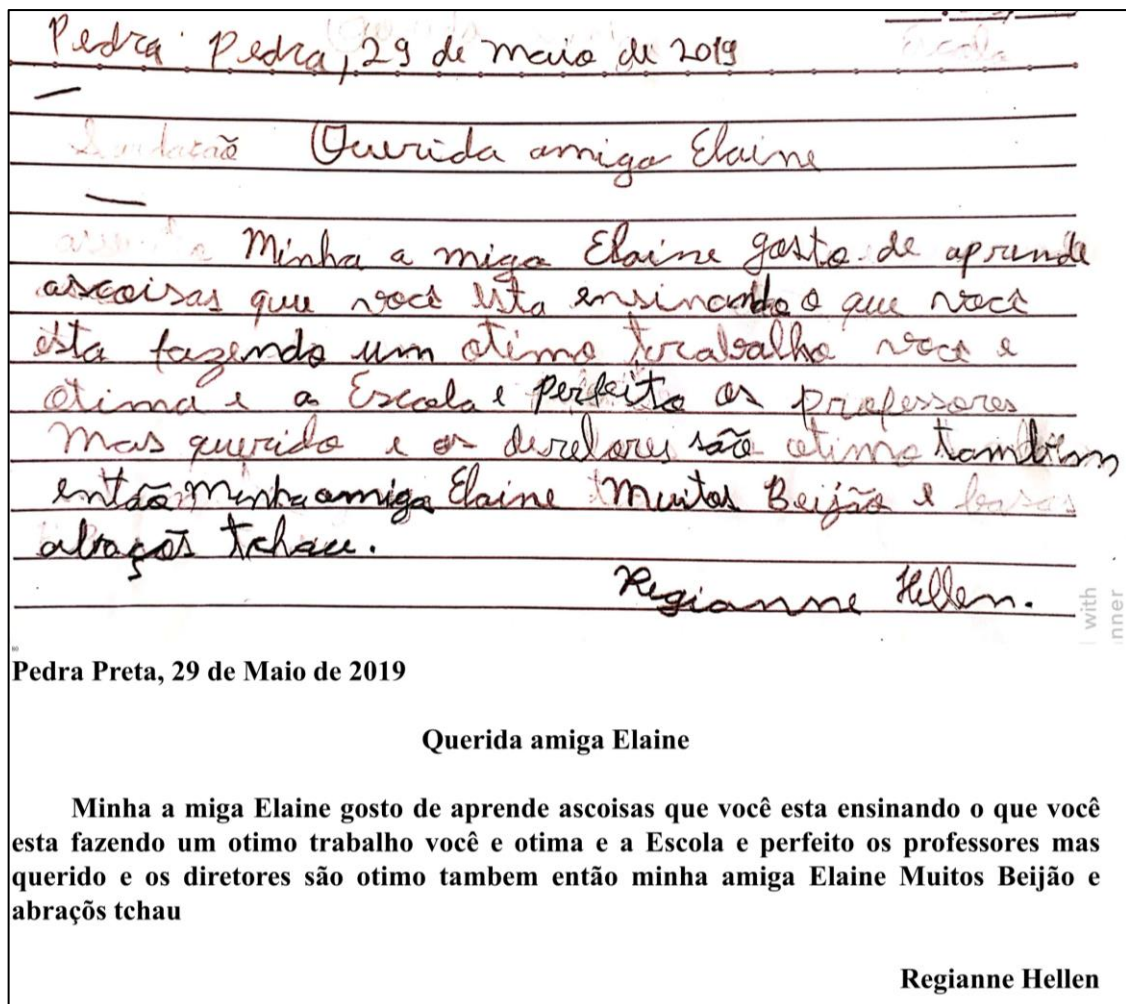 Escola
Pedra Pedra, 29 de maio de 2019
Querida amiga Elaine
Minha a miga Elaine gosto de aprende
ascoisas que você esta ensinando o que você
esta fazendo um otimo trabalho você e
otima e a Escola e perfeito os professores
mas querido e os diretores são otimo também
então minha amiga Elaine Muitos Beijão e
abraços tchau.
Regianne Hellen.
with
nner
Pedra Preta, 29 de Maio de 2019
Querida amiga Elaine
Minha a miga Elaine gosto de aprende ascoisas que você esta ensinando o que você
esta fazendo um otimo trabalho você e otima e a Escola e perfeito os professores mas
querido e os diretores são otimo tambem então minha amiga Elaine Muitos Beijão e
abraçõs tchau
Regianne Hellen